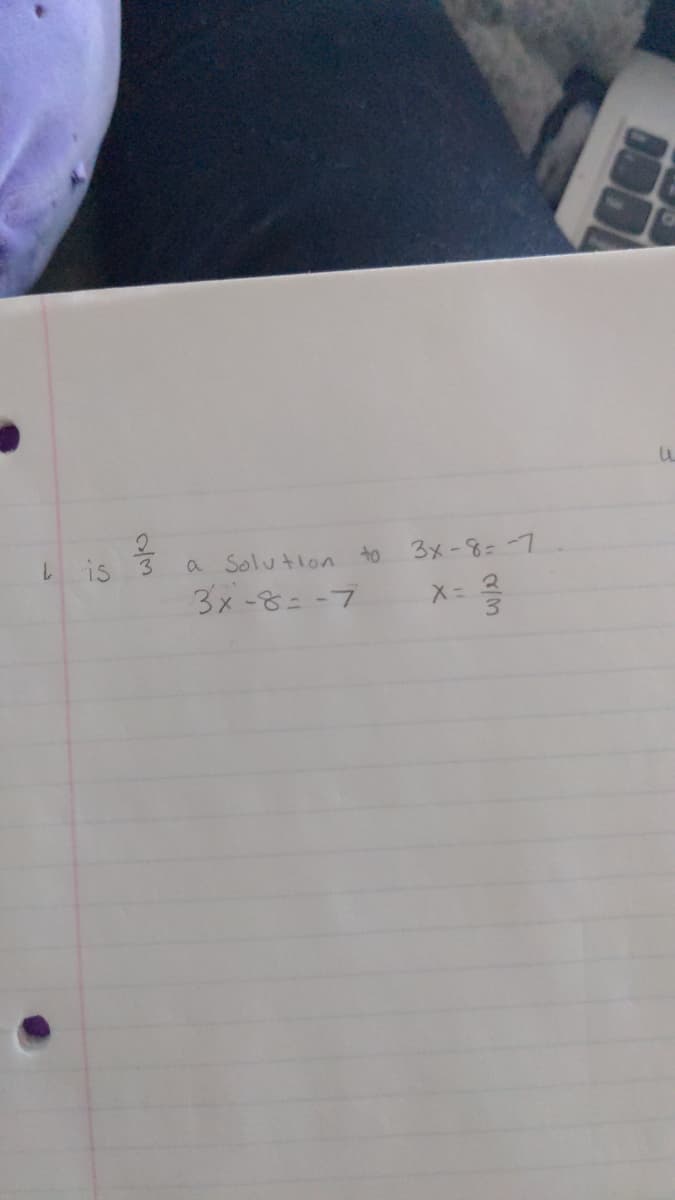 is 2/3 a Solution to 3x-8=-7.
3x-8=-7 x=2/3